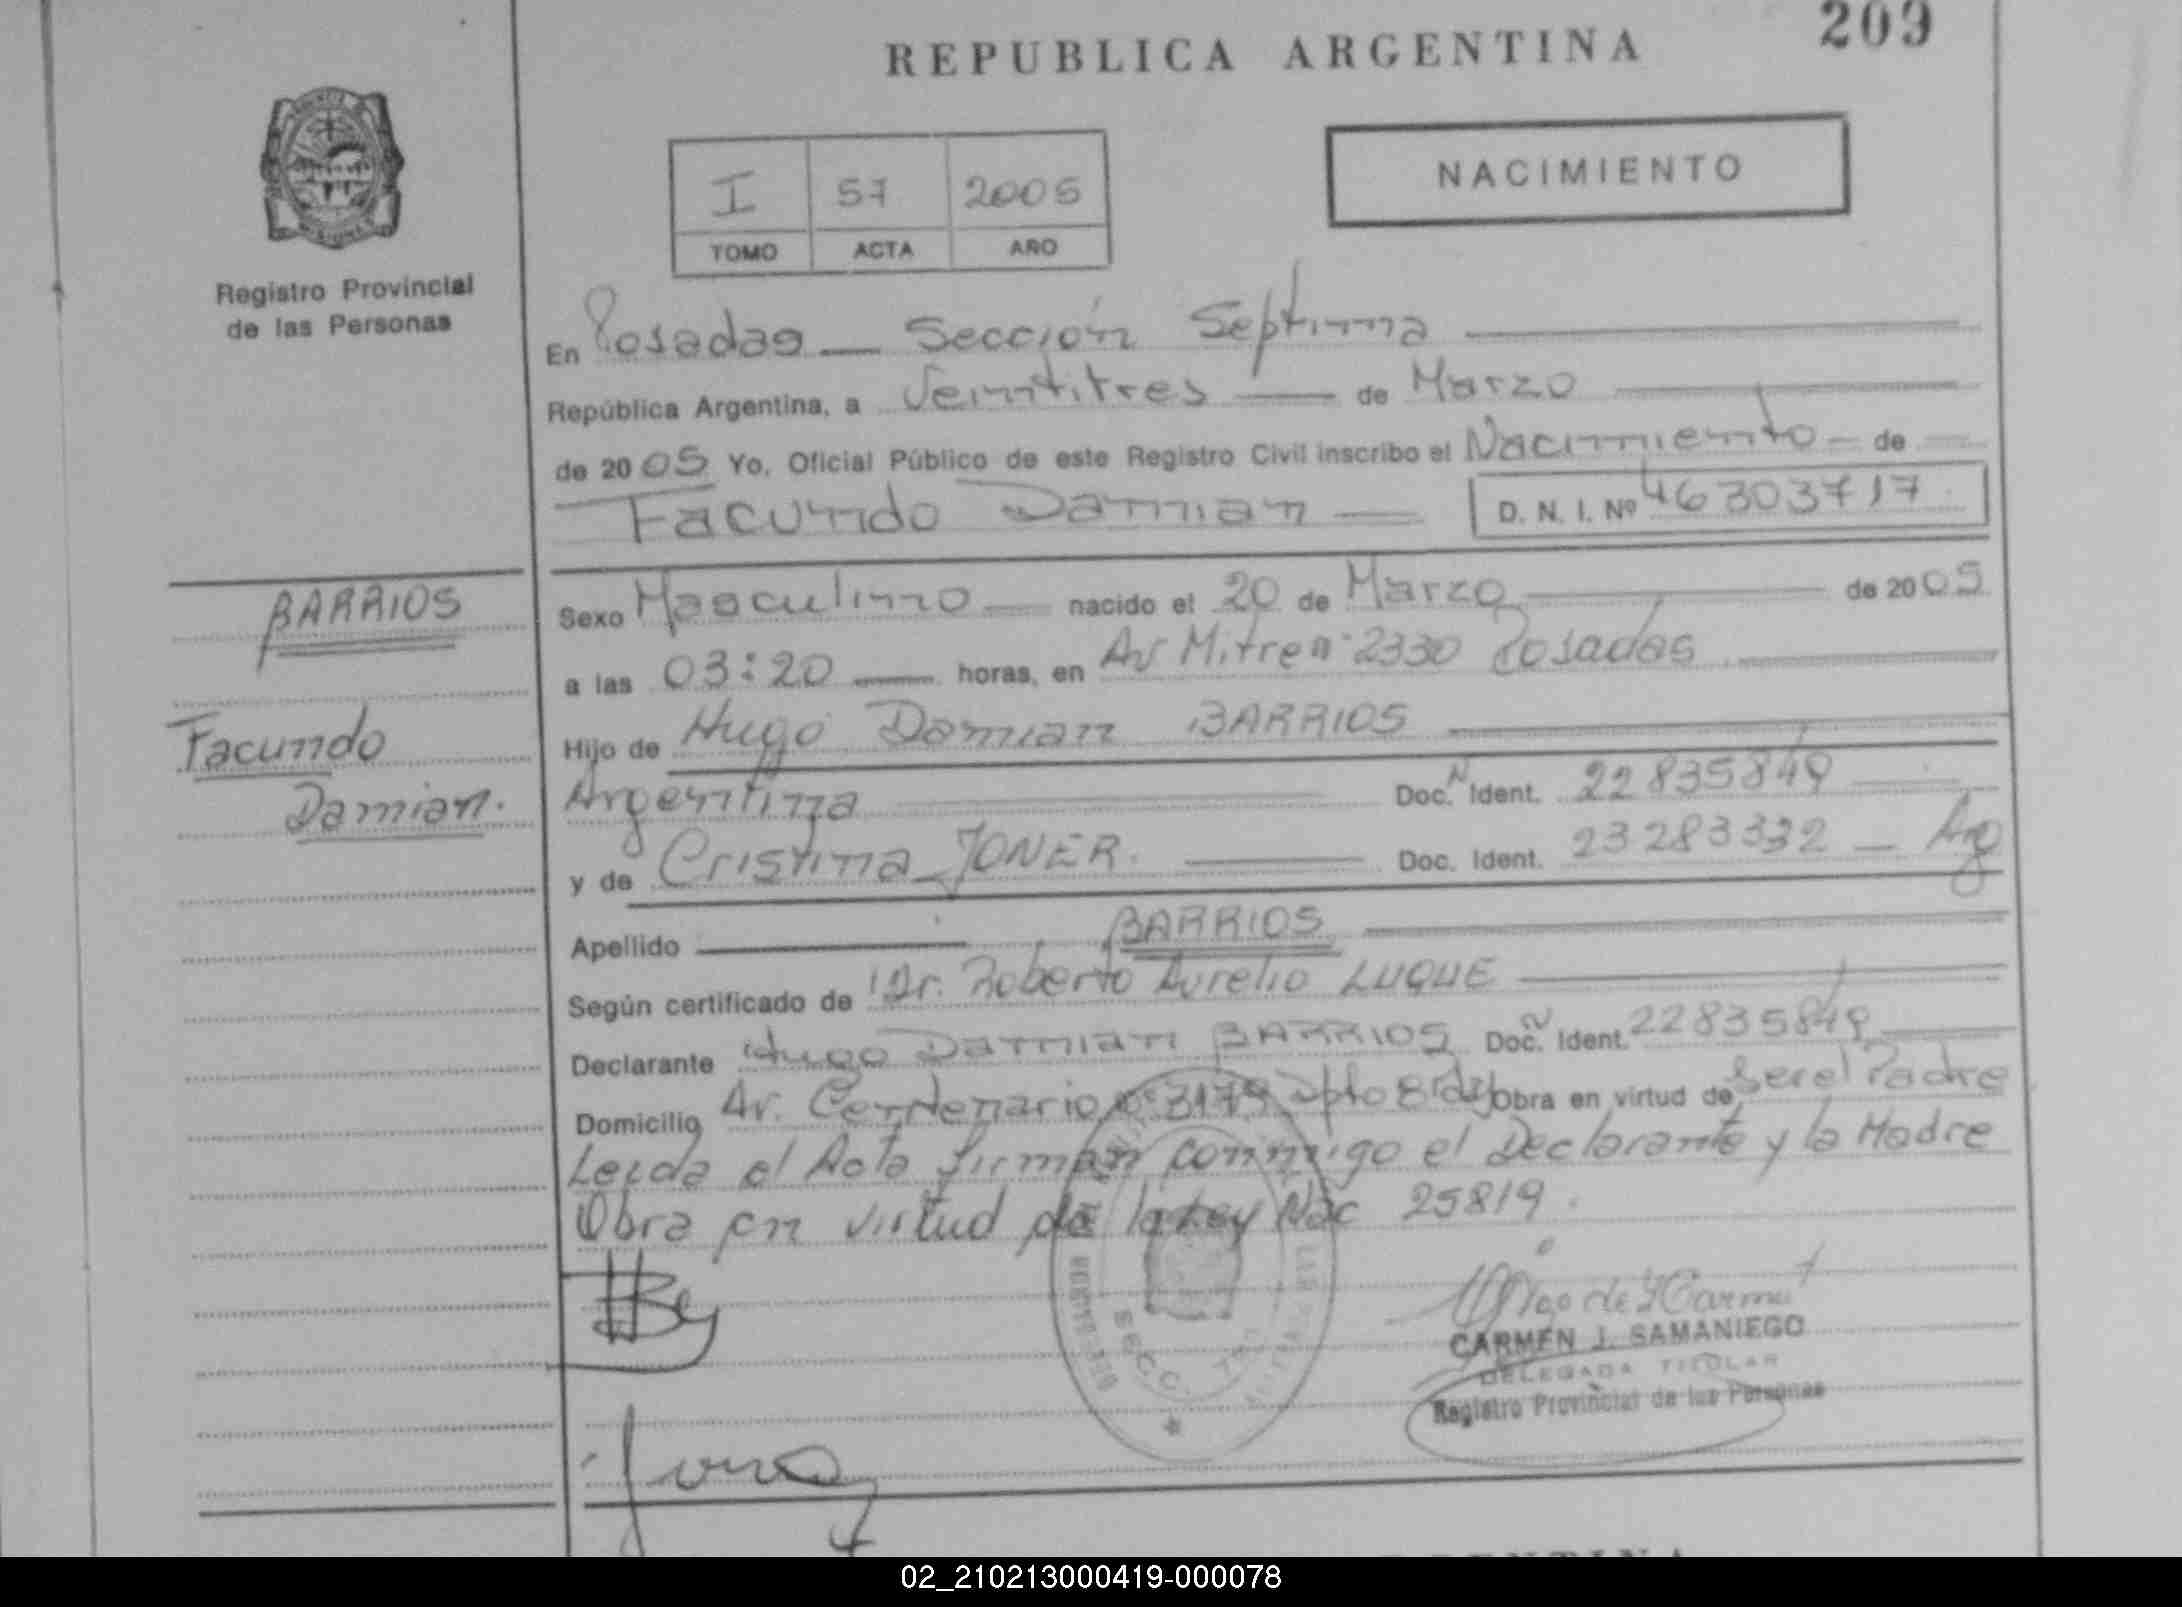 REPUBLICA ARGENTINA
209
NACIMIENTO
I 57 2005
TOMO ACTA AÑO
Registro Provincial
de las Personas
En Posadas — Sección Septima
República Argentina, a Veintitres — de Marzo
de 2005 Yo, Oficial Público de este Registro Civil inscribo el Nacimiento — de
Facundo Damian — D. N. I. Nº 46303717
BARRIOS
Facundo
Damian.
Sexo Masculino — nacido el 20 de Marzo — de 2005
a las 03:20 — horas, en Av Mitre nº 2330 Posadas
Hijo de Hugo Damian BARRIOS
Argentina Doc. Ident. 22835849
y de Cristina JONER. — Doc. Ident. 23283332 — Arg
Apellido — BARRIOS
Según certificado de Dr. Roberto Aurelio LUQUE
Declarante Hugo Damian BARRIOS Doc. Ident. 22835849
Domicilio Av. Centenario nº 3179 dpto 8 Obra en virtud de ser el Padre
Leida el Acta firman conmigo el Declarante y la Madre
Obra en virtud de la Ley Nac 25819.
CARMEN J. SAMANIEGO
DELEGADA TITULAR
Registro Provincial de las Personas
SECC.
02_210213000419-000078